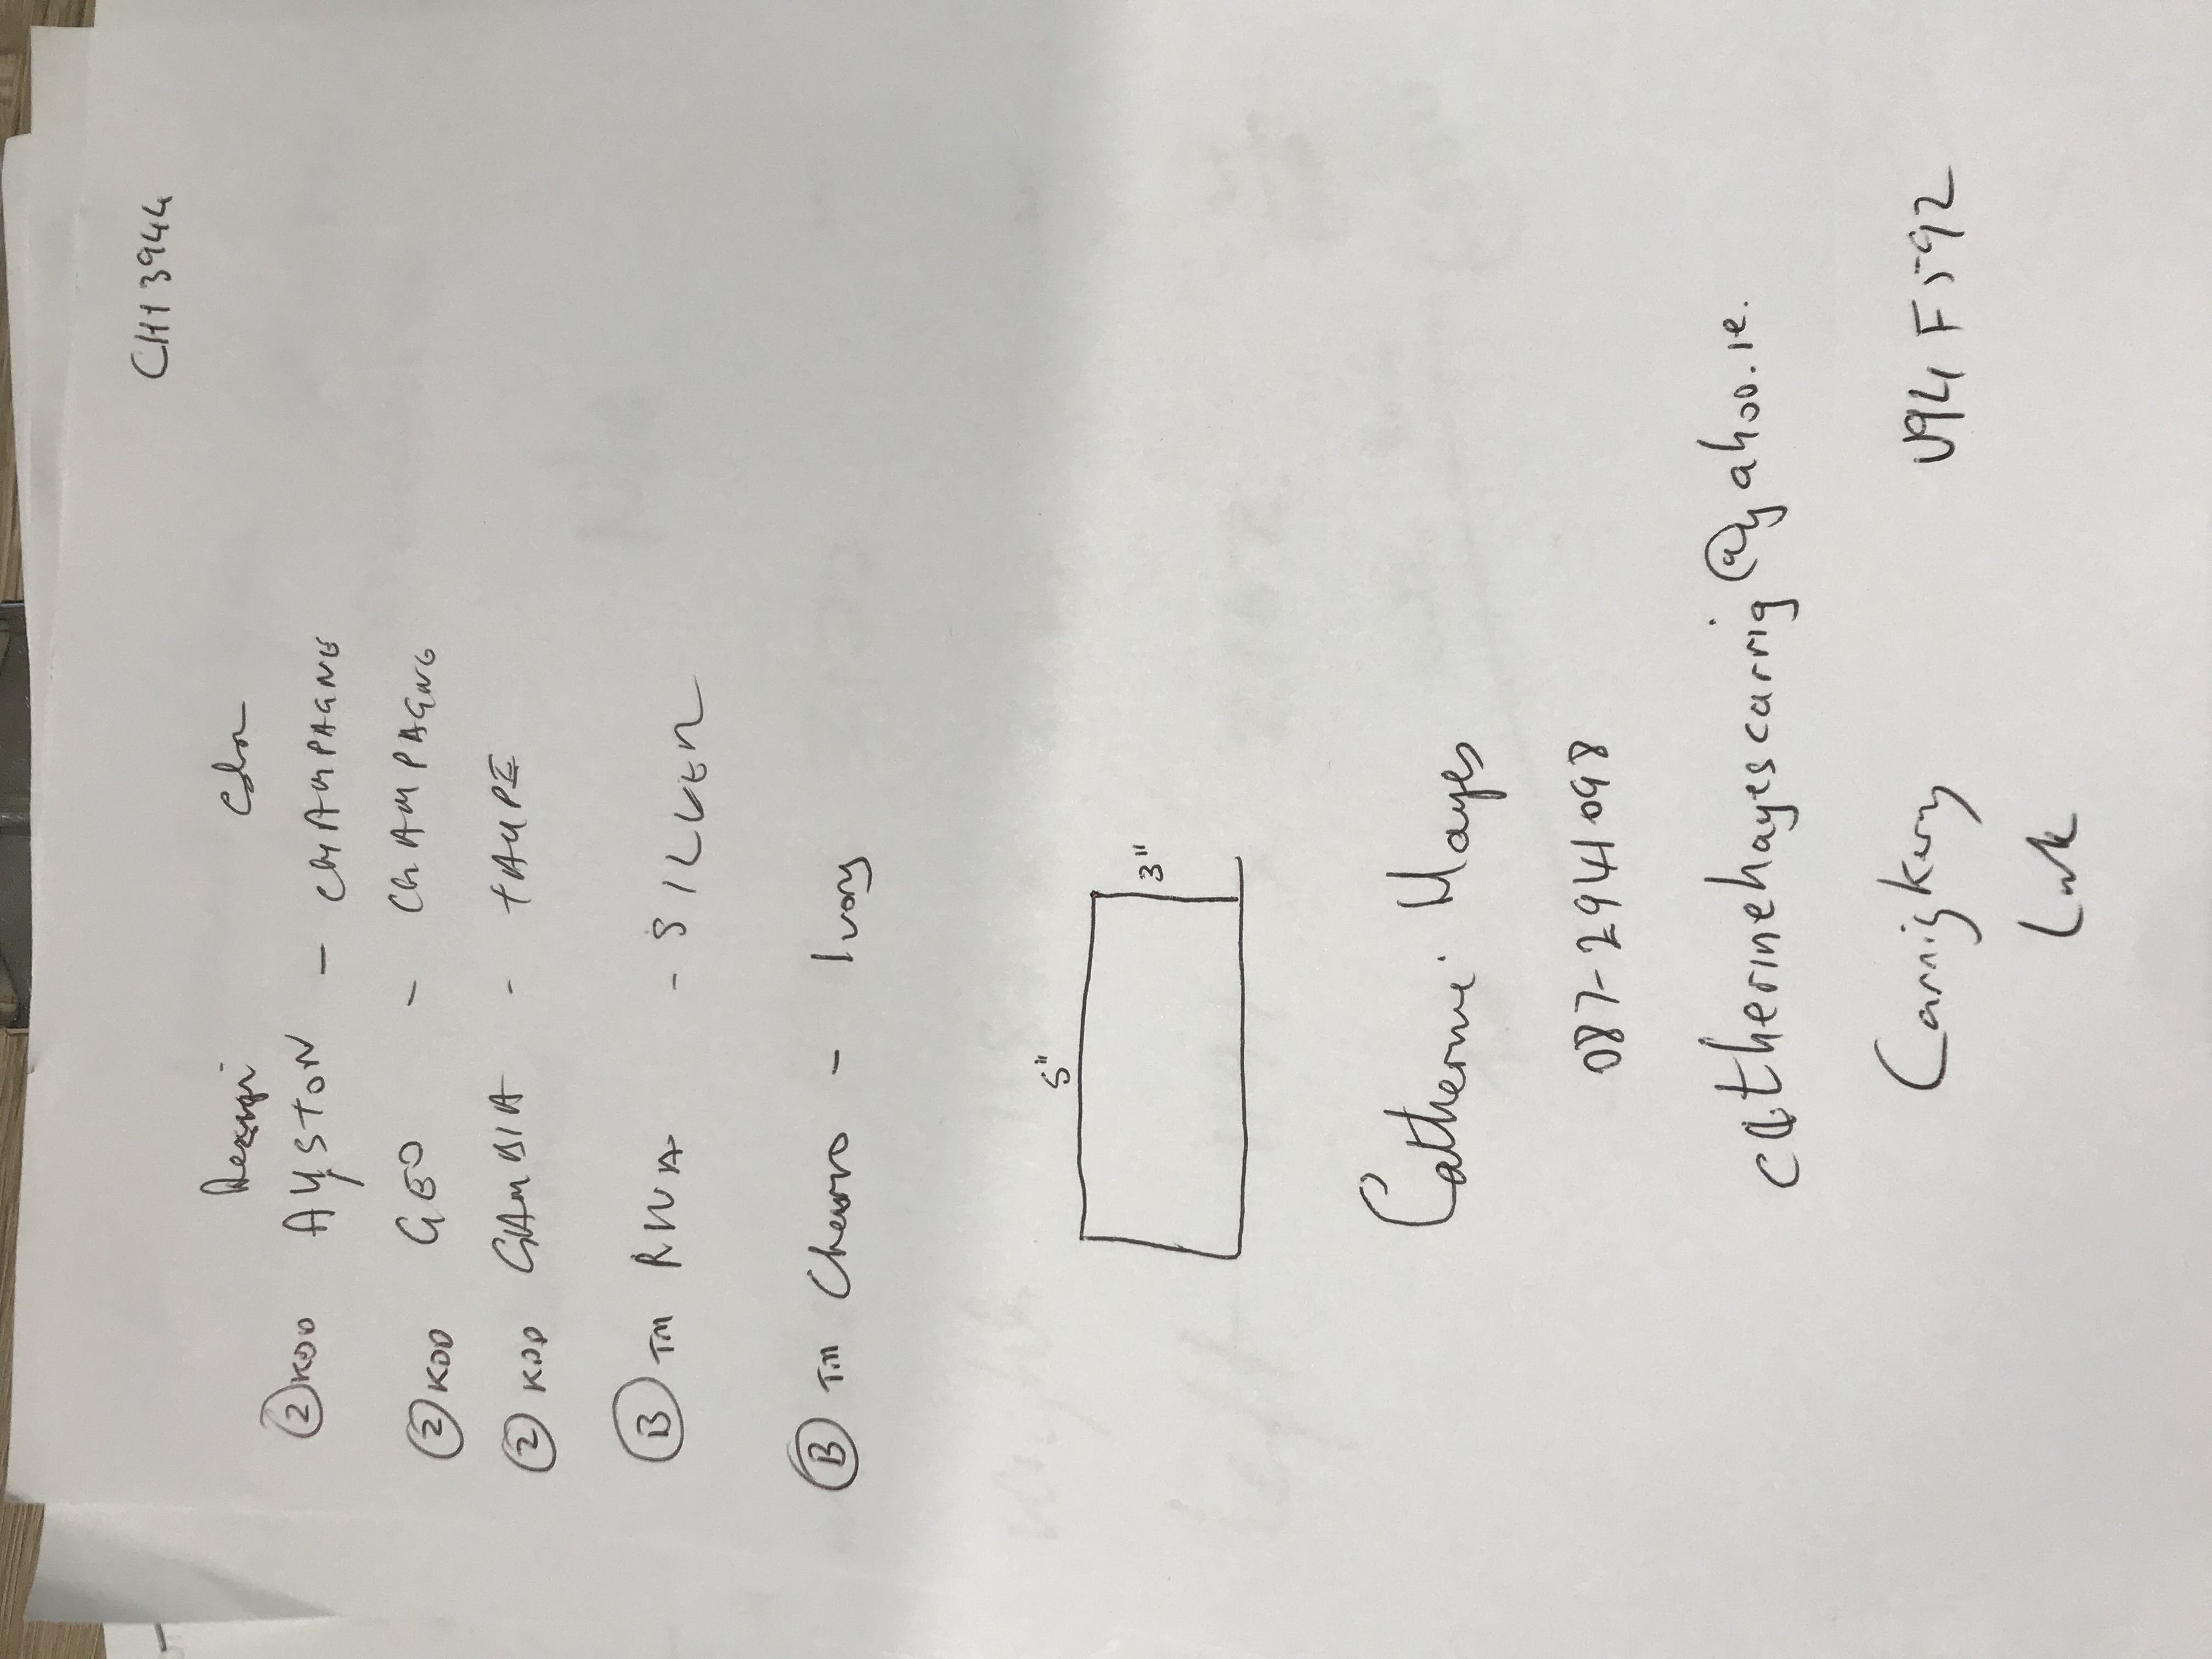 CH13944
Design Color
② KDD AYSTON - CHAMPAGNE
② KDD GEO - CHAMPAGNE
② KDD GAMBIA - TAUPE
Ⓑ TM RIVA - SILVER
Ⓑ TM Chevron - Ivory
5"
3"
Catherine Hayes
087-2941098
catherinehayescarrig@yahoo.ie.
Carrigkerry V94F592
Lmk